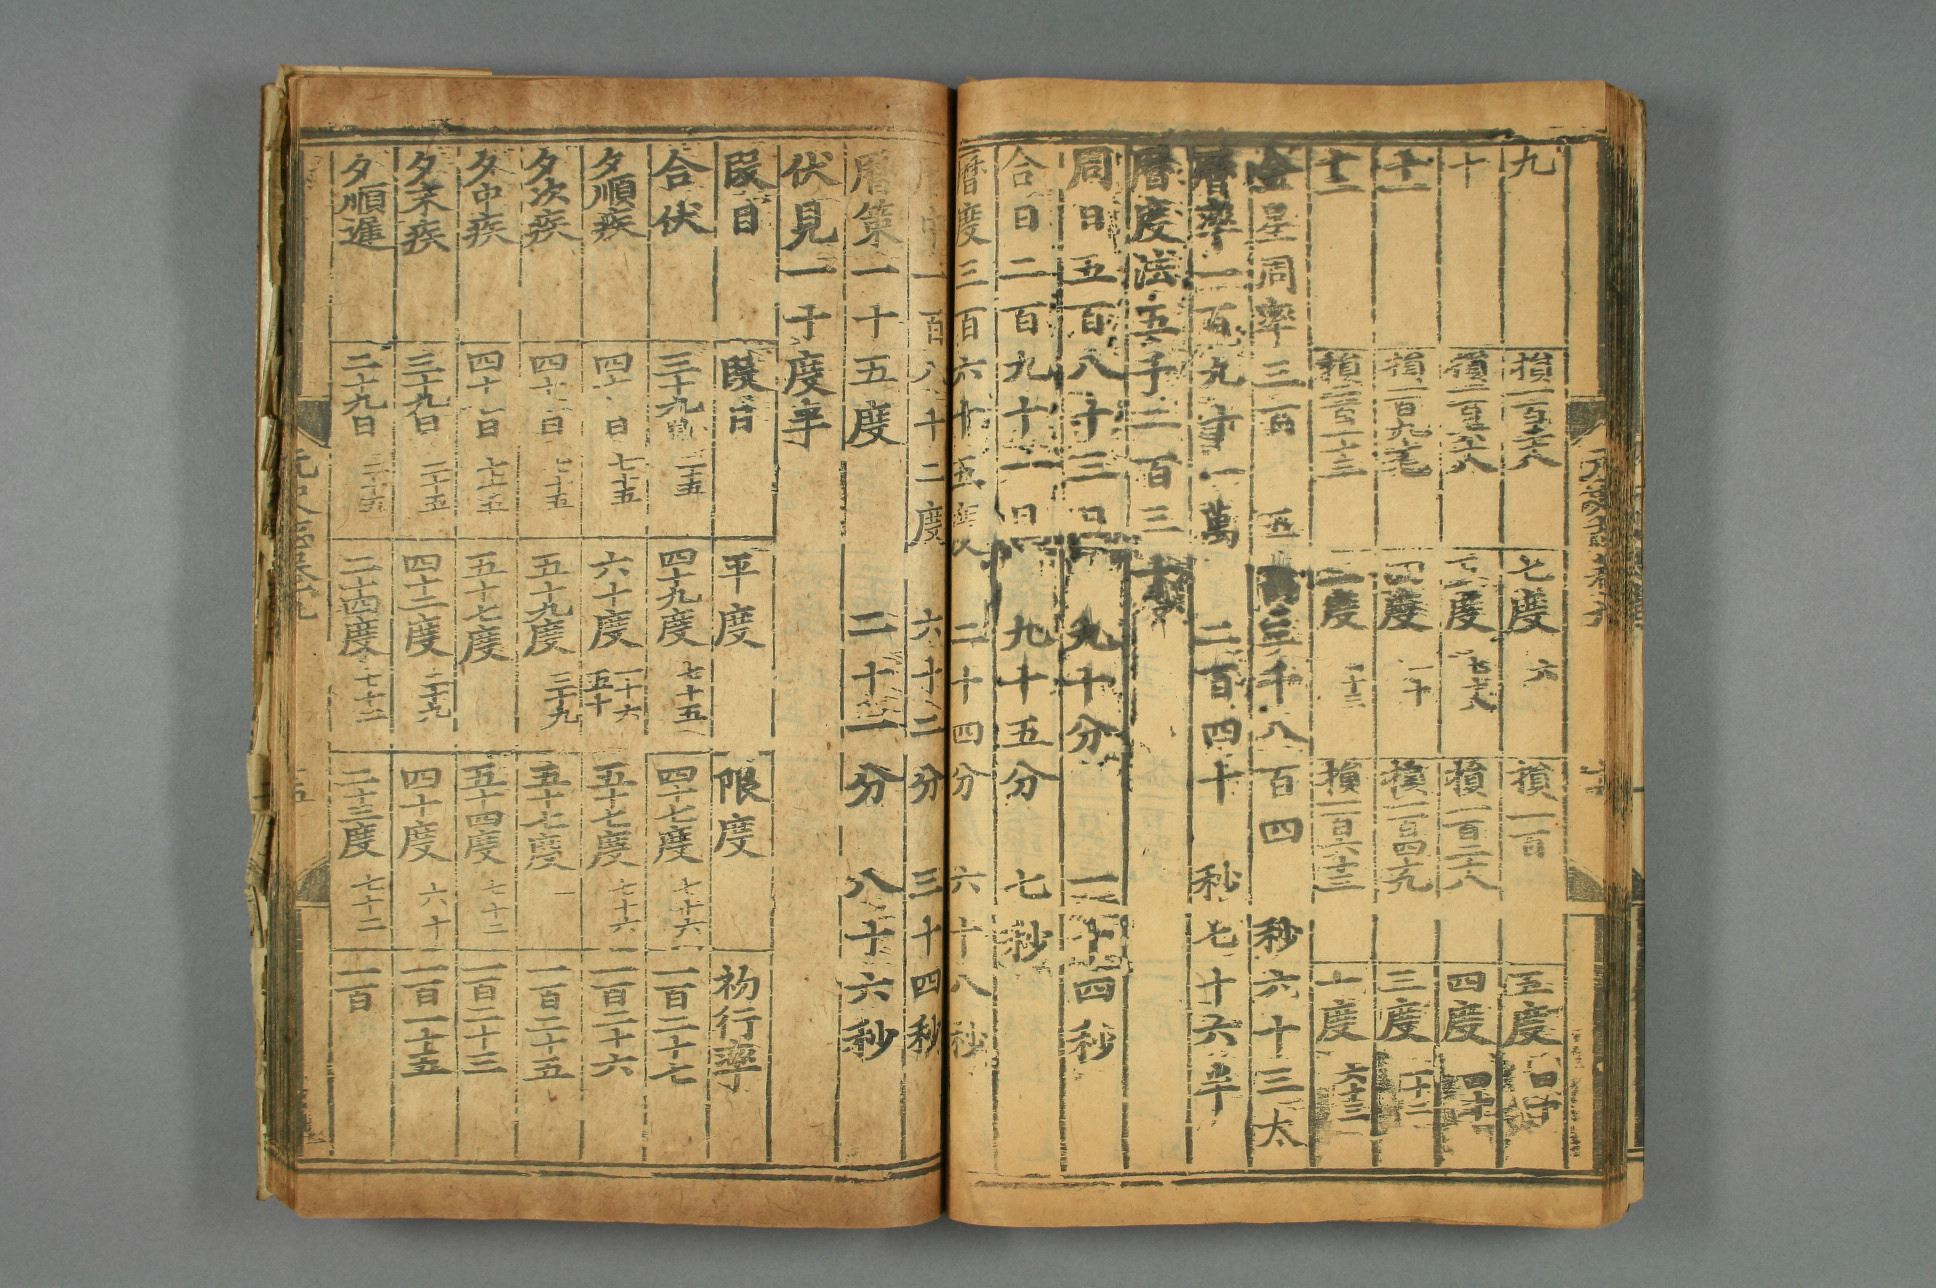 九 損一百七十八 七度 六 損一百 五度
十 損二百 度 七十八 損一百二十八 四度
十一 損二百九十九 四度 一十 損一百四十九 三度 一十二
十二 損三百一十三 二度 一十三 損一百六十三 一度 六十三
金星周率三百 五 三千八百四 秒六十三太
曆率一百九十一萬 二百四十 秒七十六半
曆度法五千二百三十
周日五百八十三日 九十分 一十四秒
合日二百九十一日 九十五分 七秒
曆度三百六十五度 二十四分 六十八秒
曆中一百八十二度 六十二分 三十四秒
曆策一十五度 二十一分 八十六秒
伏見一十度半
段目 段日 平度 限度 初行率
合伏 三十九日 二十五 四十九度 七十五 四十七度 七十六 一百二十七
夕順疾 四十 日 七十五 六十度 一十六 五十 五十七度 七十六 一百二十六
夕次疾 四十 日 七十五 五十九度 三十九 五十七度 一 一百二十五
夕中疾 四十 日 七十五 五十七度 五十四度 七十二 一百二十三
夕末疾 三十九日 二十五 四十二度 二十九 四十度 六十 一百一十五
夕順遲 二十九日 二十五 二十四度 七十二 二十三度 七十二 一百